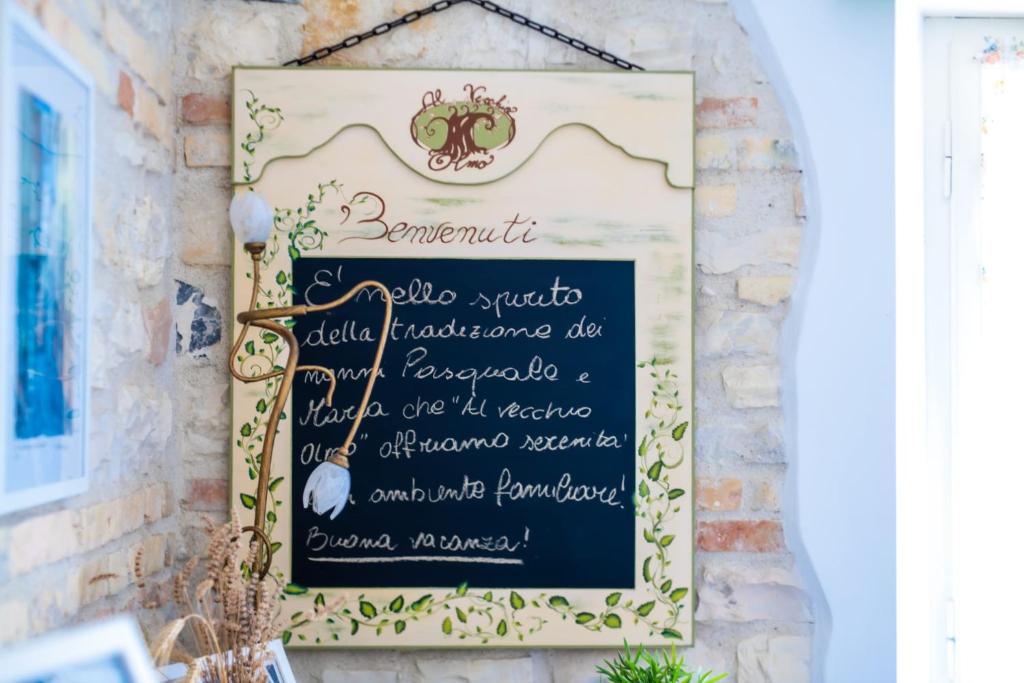 Al Vecchio
Olmo
Benvenuti
E' nello spirito
della tradizione dei
nonni Pasquale e
Maria che "Al vecchio
Olmo" offriamo serenità
ambiente familiare!
Buona vacanza!